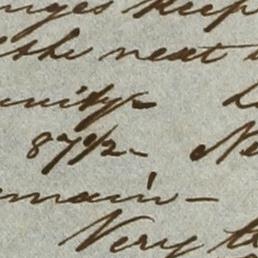 nges keep
the next
unity
87½- Ne
main-
Very t